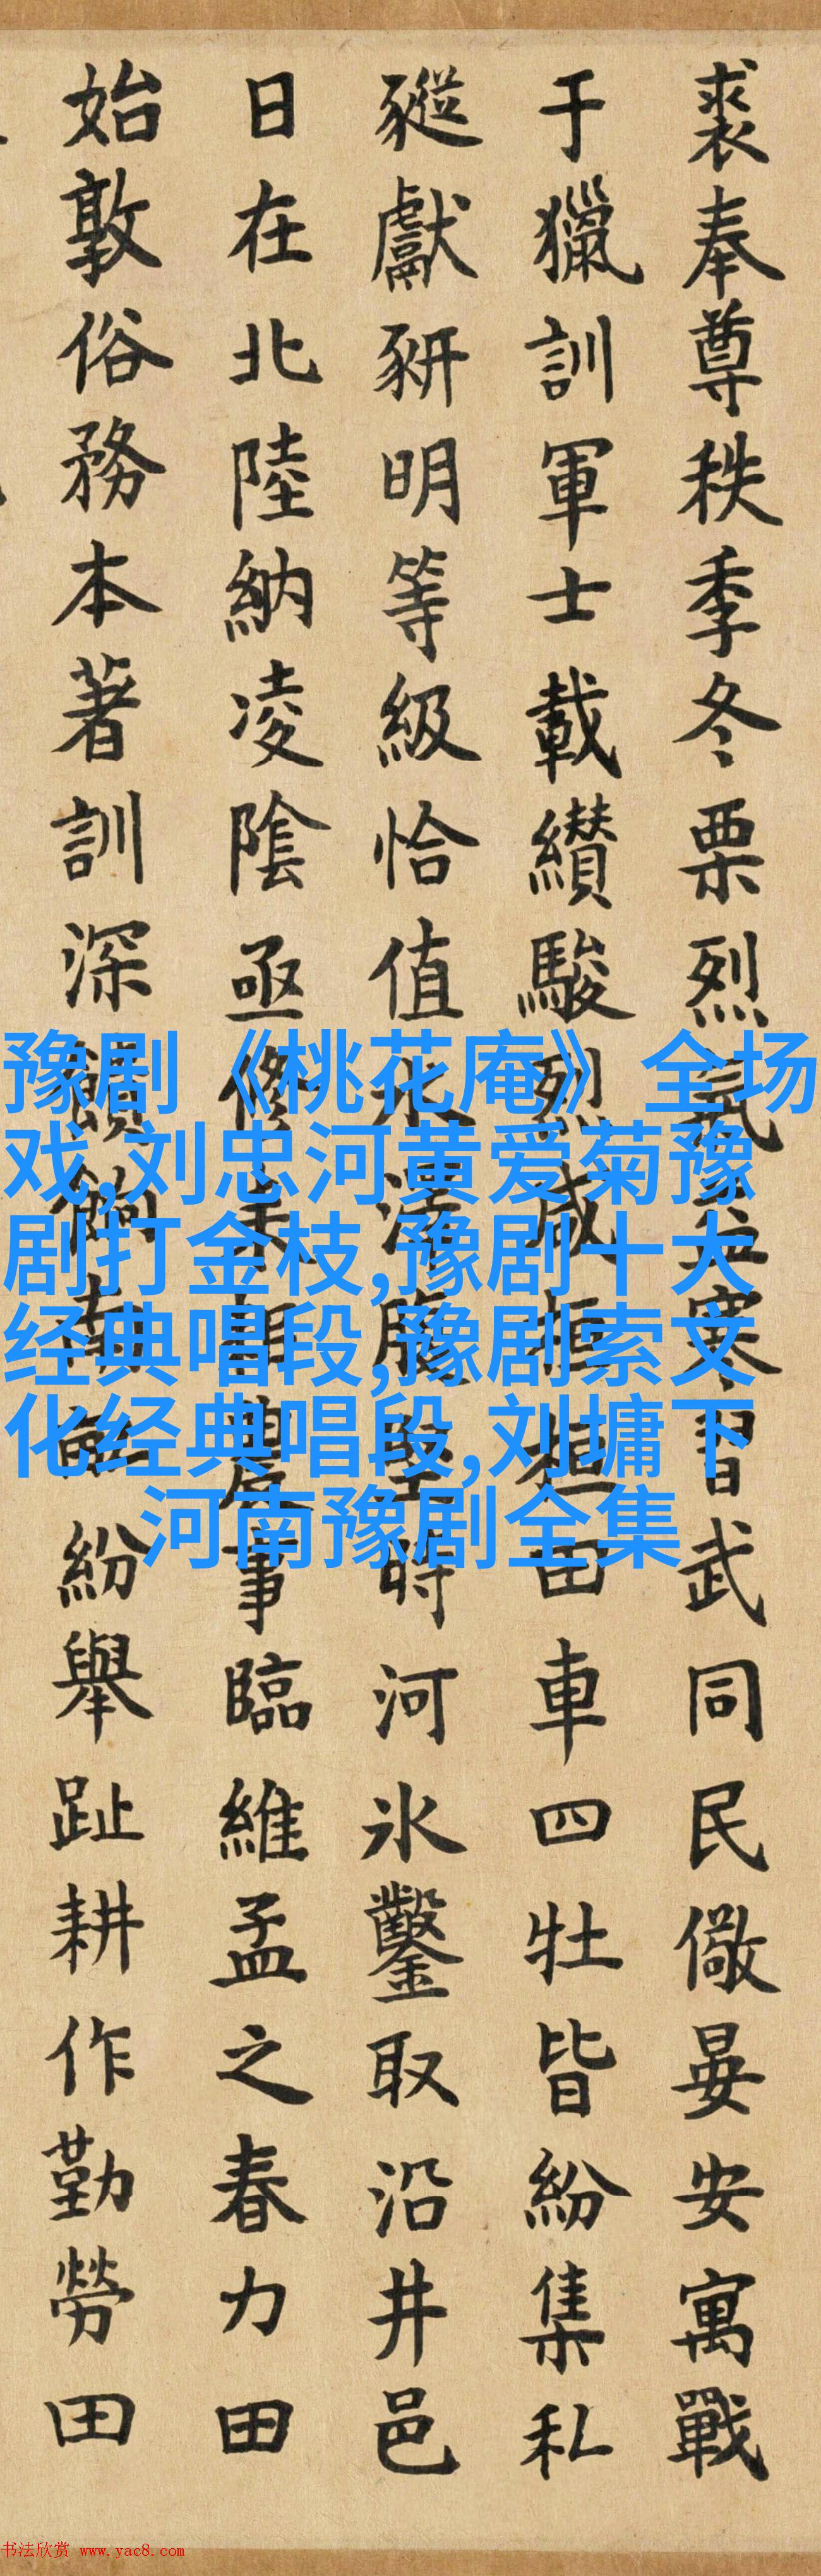 裘奉尊秩季冬栗烈氣寒習武同民儆晏安寓戰
于獵訓軍士載纘駿烈咸桓桓田車四牡皆紛集私
豵獻豜明等級恰值水澤腹堅時河氷鑿取沿井邑
日在北陸納凌陰亟修耒耜農事臨維孟之春力田
始敦俗務本著訓深饋餉南畝紛舉趾耕作勤勞田
豫剧《桃花庵》全场
戏,刘忠河黄爱菊豫
剧打金枝,豫剧十大
经典唱段,豫剧索文
化经典唱段,刘墉下
河南豫剧全集
书法欣赏 www.yac8.com